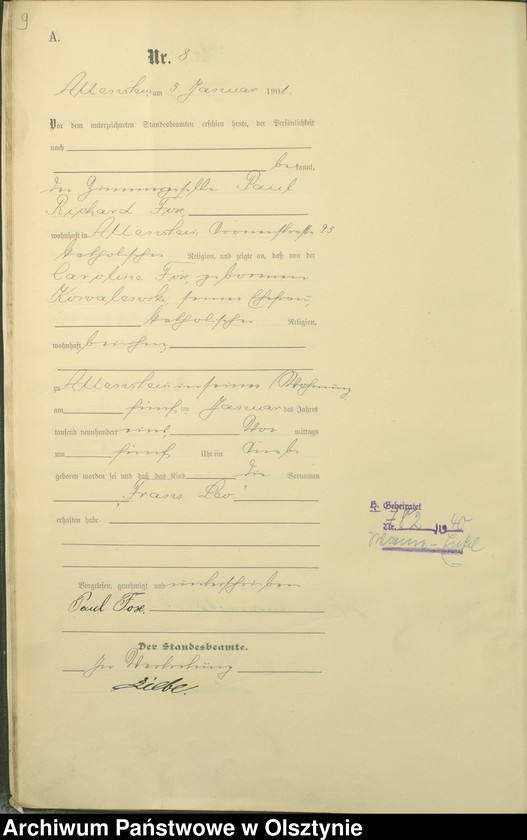 9
A.
Nr. 8
Allenstein, am Januar 1901.
Vor dem unterzeichneten Standesbeamten erschien heute, der Persönlichkeit
nach
bekannt,
der Zimmergeselle Paul
Richard Fox,
wohnhaft in Allenstein,
katholischer Religion, und zeigte an, daß von der
Caroline Fox, geborenen
Kowalewski, seiner Ehefrau,
katholischer Religion,
wohnhaft bei ihm,
zu Allenstein in seiner Wohnung
am fünften Januar des Jahres
tausend neunhundert eins, Vor mittags
um fünf Uhr ein Knabe
geboren worden sei und daß das Kind die Vornamen
"Franz Leo"
erhalten habe.
Vorgelesen, genehmigt und unterschrieben
Paul Fox.
Der Standesbeamte.
In Vertretung
H. Geheiratet
Nr. 782 1940
Archiwum Państwowe w Olsztynie